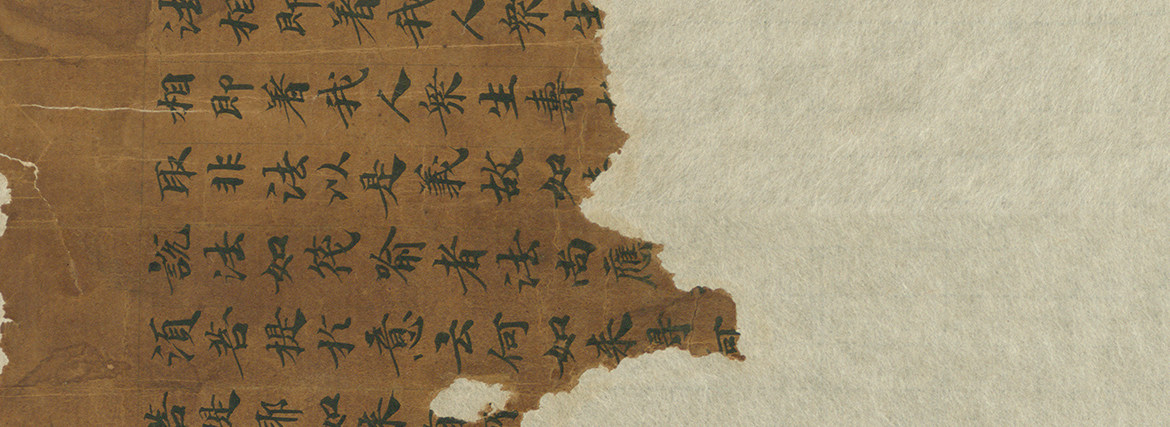 法相即著我人衆生
相即著我人衆生壽
取非法以是義故如
說法如筏喻者法尚應
須菩提扵意云何如来得阿
菩提耶如来